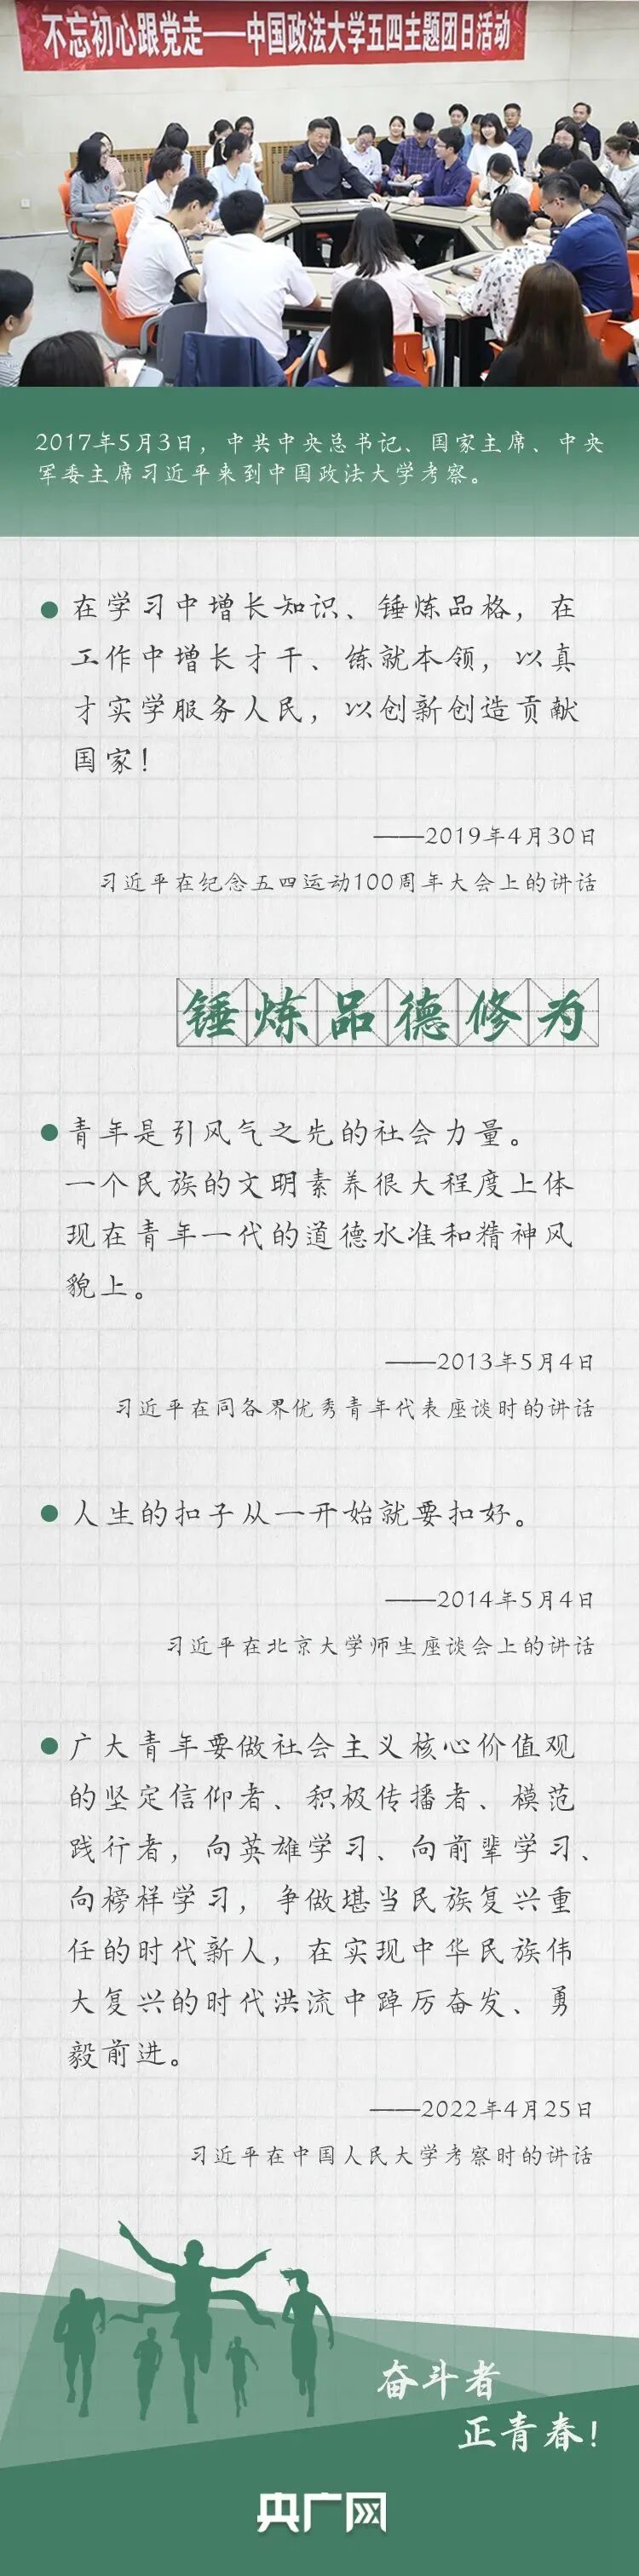 不忘初心跟党走——中国政法大学五四主题团日活动
2017年5月3日，中共中央总书记、国家主席、中央
军委主席习近平来到中国政法大学考察。
在学习中增长知识、锤炼品格，在
工作中增长才干、练就本领，以真
才实学服务人民，以创新创造贡献
国家！
——2019年4月30日
习近平在纪念五四运动100周年大会上的讲话
锤炼品德修为
青年是引风气之先的社会力量。
一个民族的文明素养很大程度上体
现在青年一代的道德水准和精神风
貌上。
——2013年5月4日
习近平在同各界优秀青年代表座谈时的讲话
人生的扣子从一开始就要扣好。
——2014年5月4日
习近平在北京大学师生座谈会上的讲话
广大青年要做社会主义核心价值观
的坚定信仰者、积极传播者、模范
践行者，向英雄学习、向前辈学习、
向榜样学习，争做堪当民族复兴重
任的时代新人，在实现中华民族伟
大复兴的时代洪流中踔厉奋发、勇
毅前进。
——2022年4月25日
习近平在中国人民大学考察时的讲话
奋斗者
正青春！
央广网